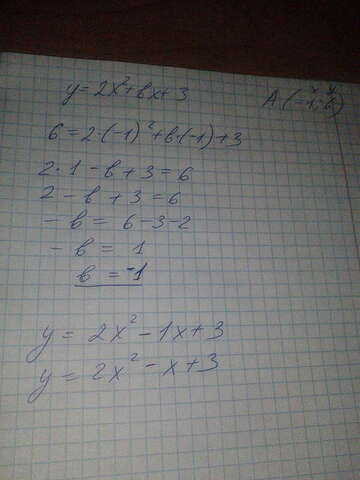 y = 2x² + вx + 3 A (-1; 6)
x y
6 = 2·(-1)² + в·(-1) + 3
2·1 - в + 3 = 6
2 - в + 3 = 6
- в = 6 - 3 - 2
- в = 1
в = -1
y = 2x² - 1x + 3
y = 2x² - x + 3